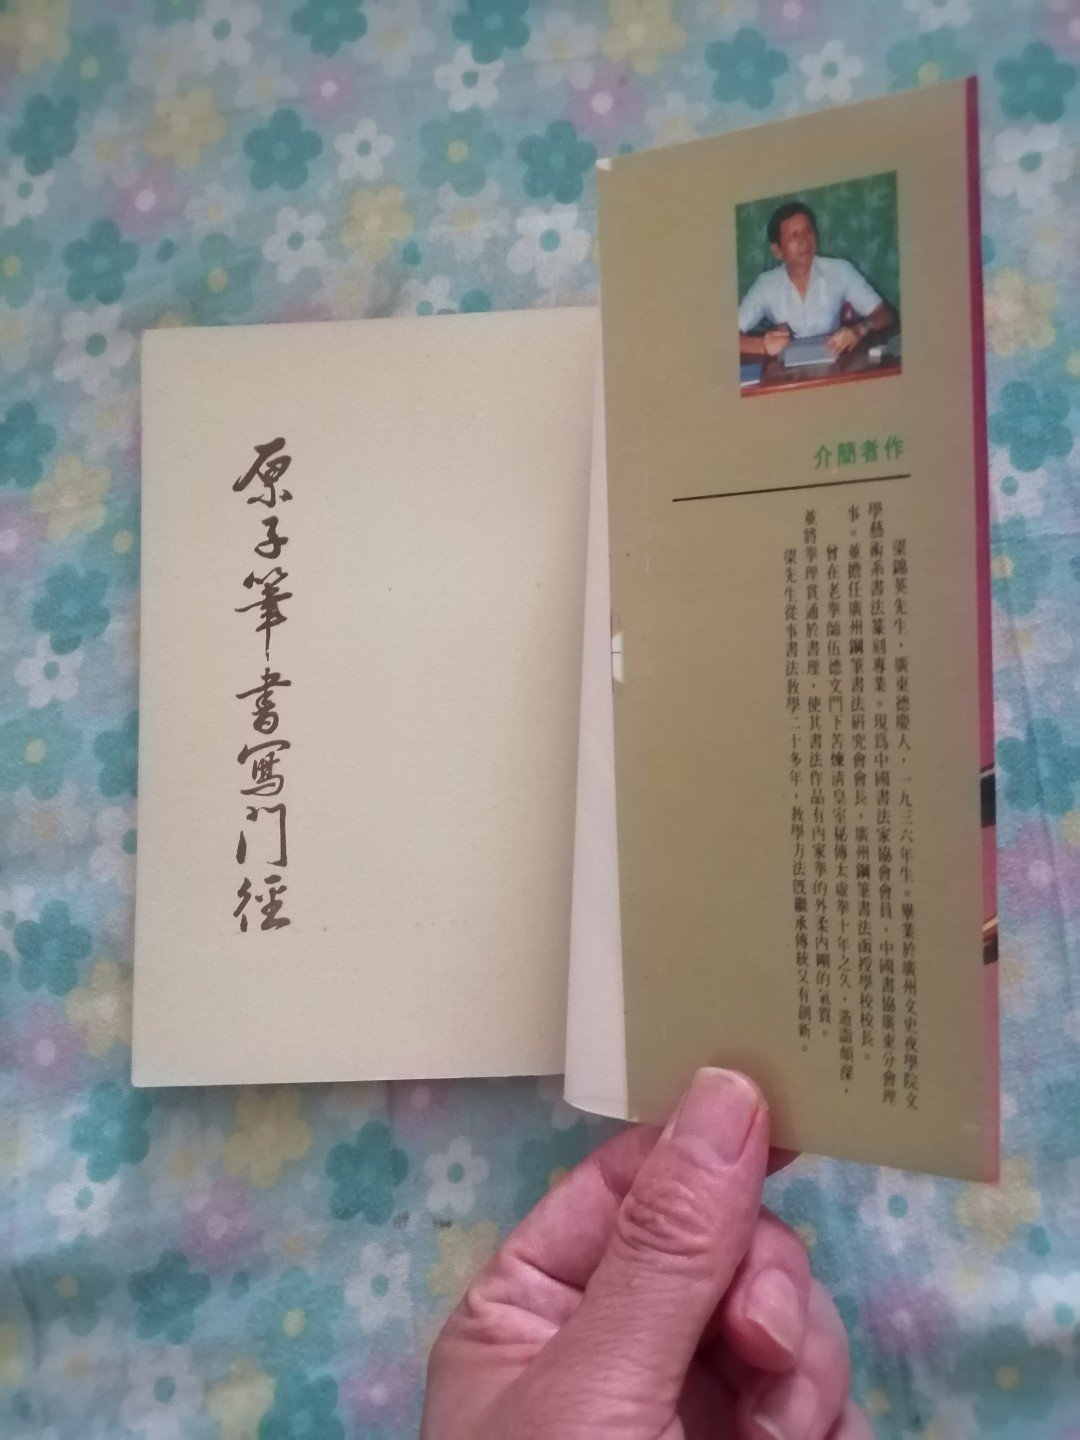 作者簡介
梁錦英先生，廣東德慶人，一九三六年生。畢業於廣州文史夜學院文
學藝術系書法篆刻專業。現爲中國書法家協會會員、中國書協廣東分會理
事。並擔任廣州鋼筆書法研究會會長，廣州鋼筆書法函授學校校長。
曾在老拳師伍德文門下苦煉清皇室秘傳太虛拳十年之久，造詣頗深，
並將拳理貫通於書理，使其書法作品有內家拳的外柔內剛的氣質。
梁先生從事書法教學二十多年，教學方法旣繼承傳統又有創新。
原子筆書寫門徑